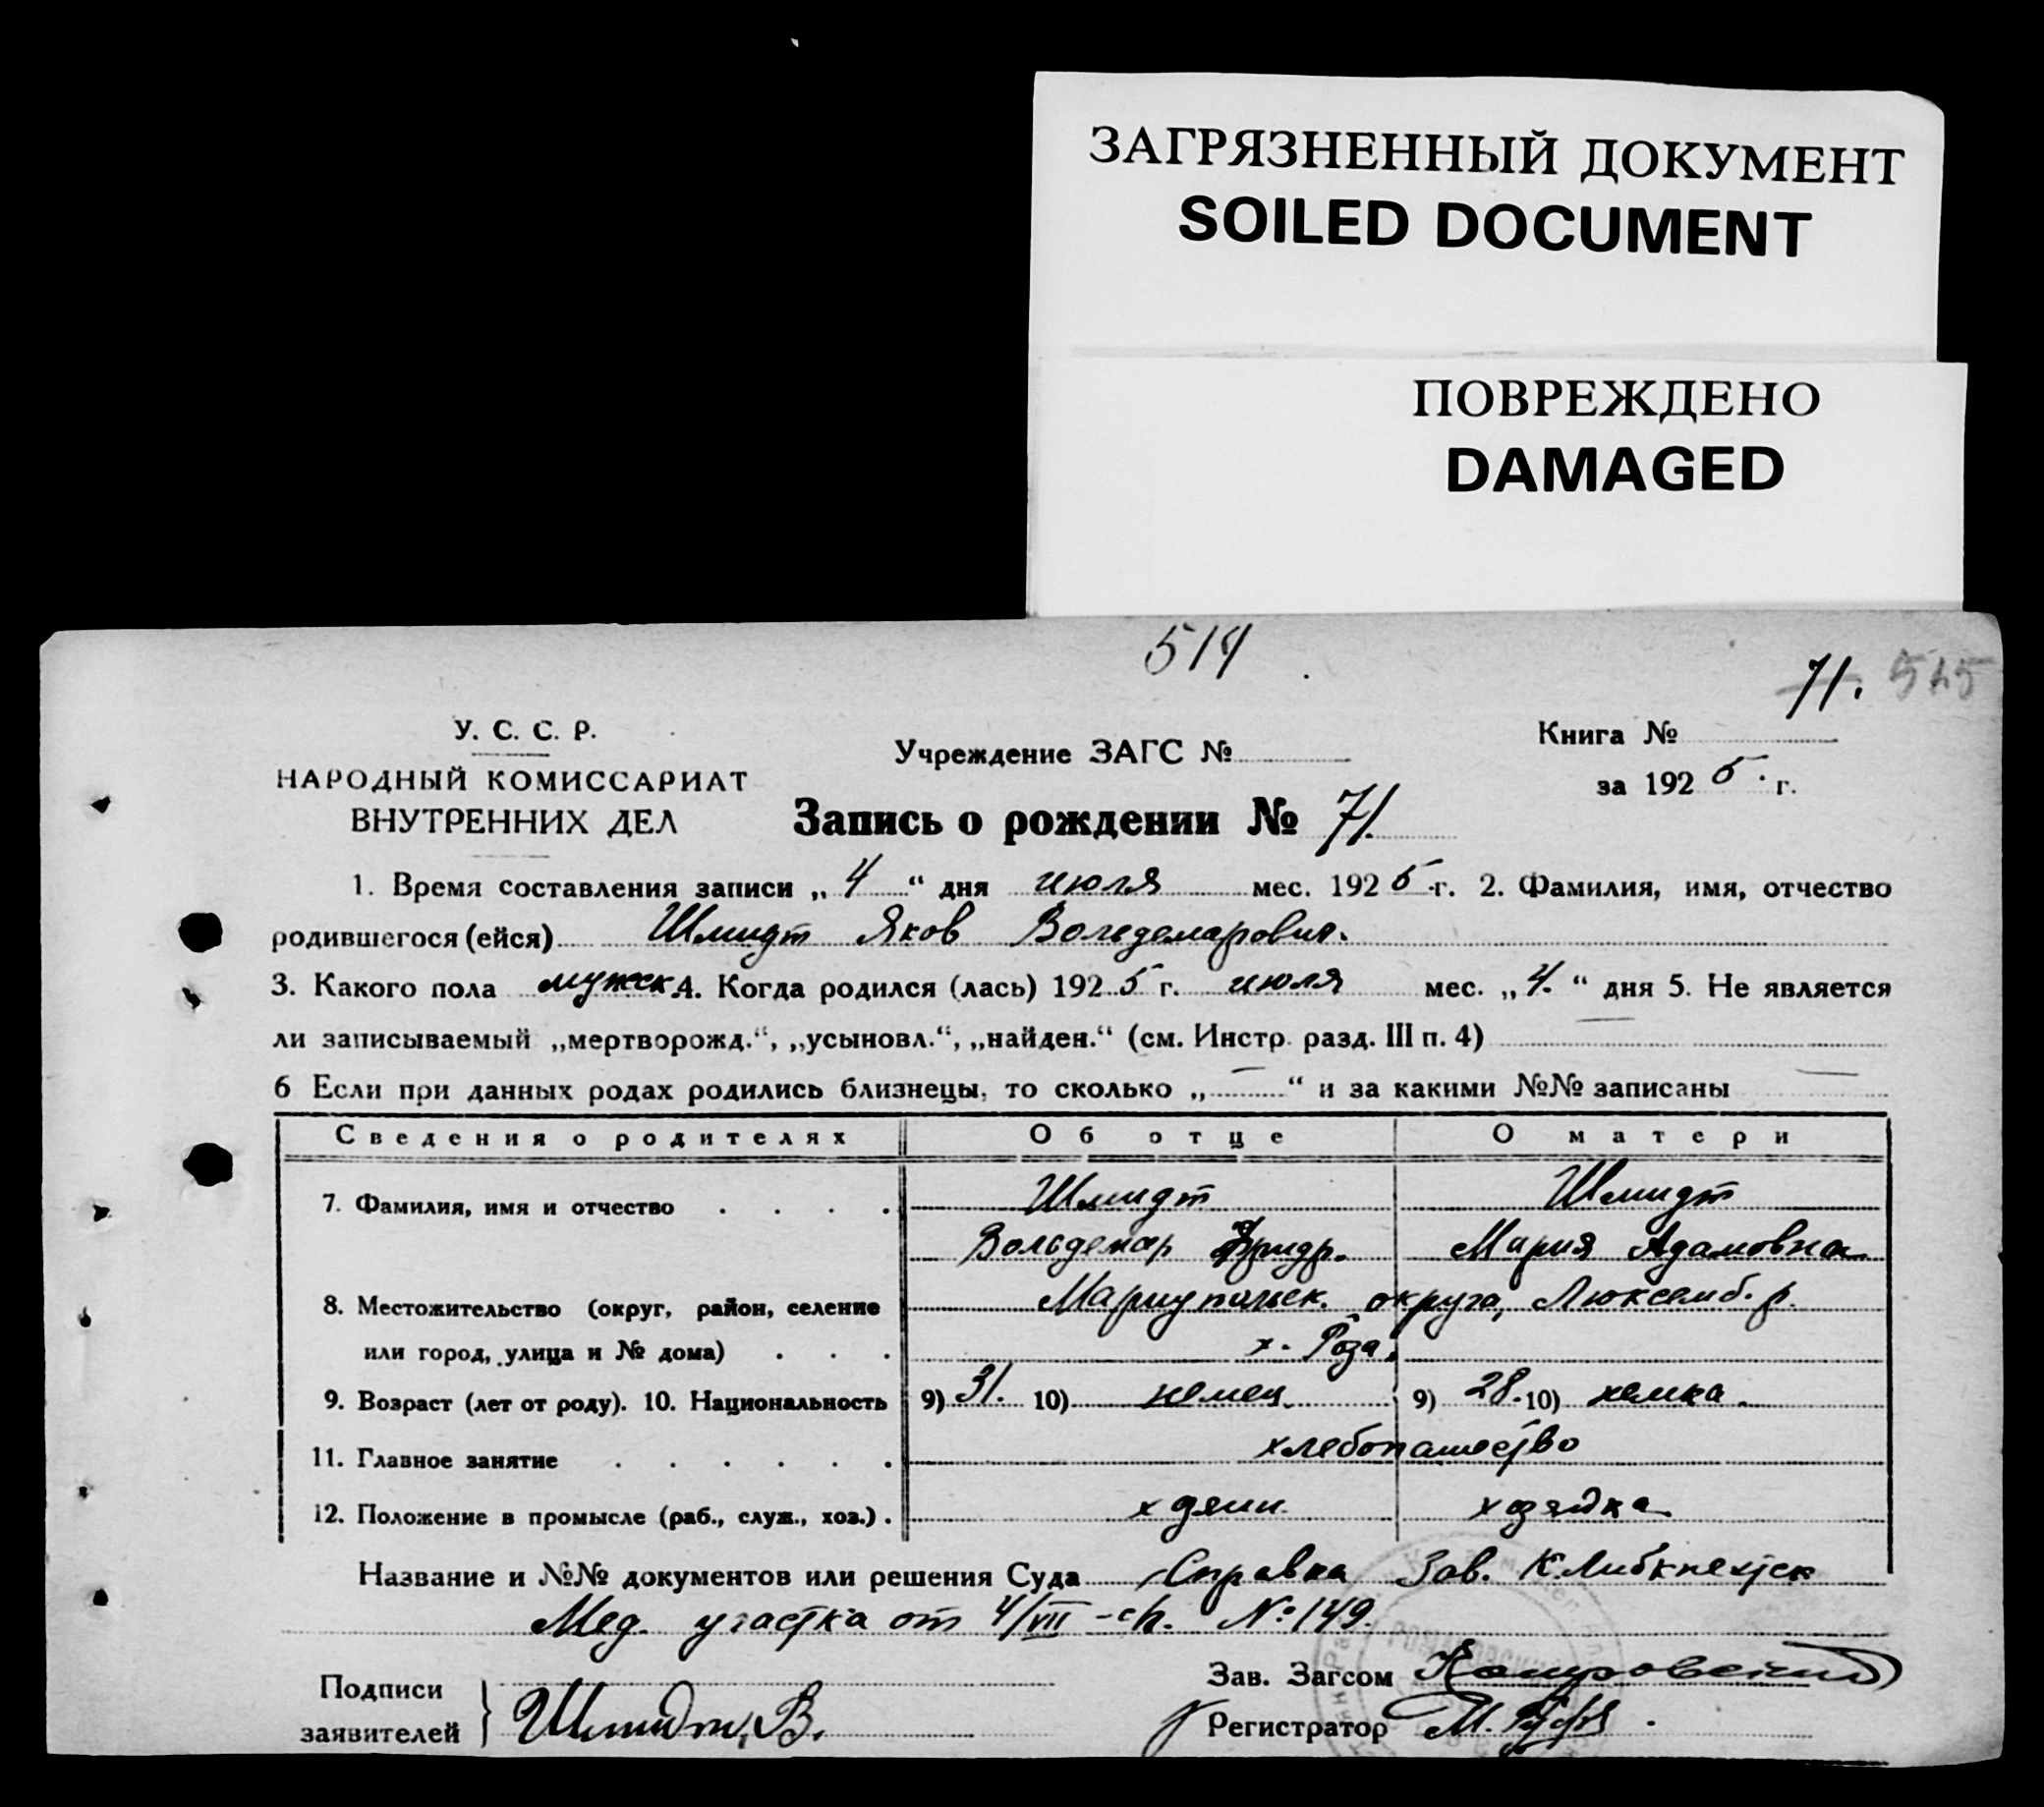 ЗАГРЯЗНЕННЫЙ ДОКУМЕНТ
SOILED DOCUMENT
ПОВРЕЖДЕНО
DAMAGED
514
71. 515
У. С. С. Р.
НАРОДНЫЙ КОМИССАРИАТ
ВНУТРЕННИХ ДЕЛ
Учреждение ЗАГС №
Книга №
за 1925. г.
Запись о рождении № 71.
1. Время составления записи „4“ дня июля мес. 1925 г. 2. Фамилия, имя, отчество
родившегося (ейся) Шмидт Яков Вольдемарович.
3. Какого пола мужск. 4. Когда родился (лась) 1925 г. июля мес. „4.“ дня 5. Не является
ли записываемый „мертворожд.“, „усыновл.“, „найден.“ (см. Инстр. разд. III п. 4) —
6 Если при данных родах родились близнецы, то сколько „—“ и за какими №№ записаны —
Сведения о родителях Об отце О матери
7. Фамилия, имя и отчество . . . . Шмидт Шмидт
Вольдемар Фридр. Мария Адамовна
8. Местожительство (округ, район, селение Мариупольск. округа, Люксемб. р.
или город, улица и № дома) . . . х. Роза.
9. Возраст (лет от роду). 10. Национальность 9) 31. 10) немец. 9) 28. 10) немка.
11. Главное занятие . . . . . . хлебопашество
12. Положение в промысле (раб., служ., хоз.) . хозяин хозяйка
Название и №№ документов или решения Суда Справка Зав. К. Либкнехтск
Мед. участка от 4/VII - с/г. № 149.
Подписи
заявителей } Шмидт, В.
Зав. Загсом
Регистратор М.